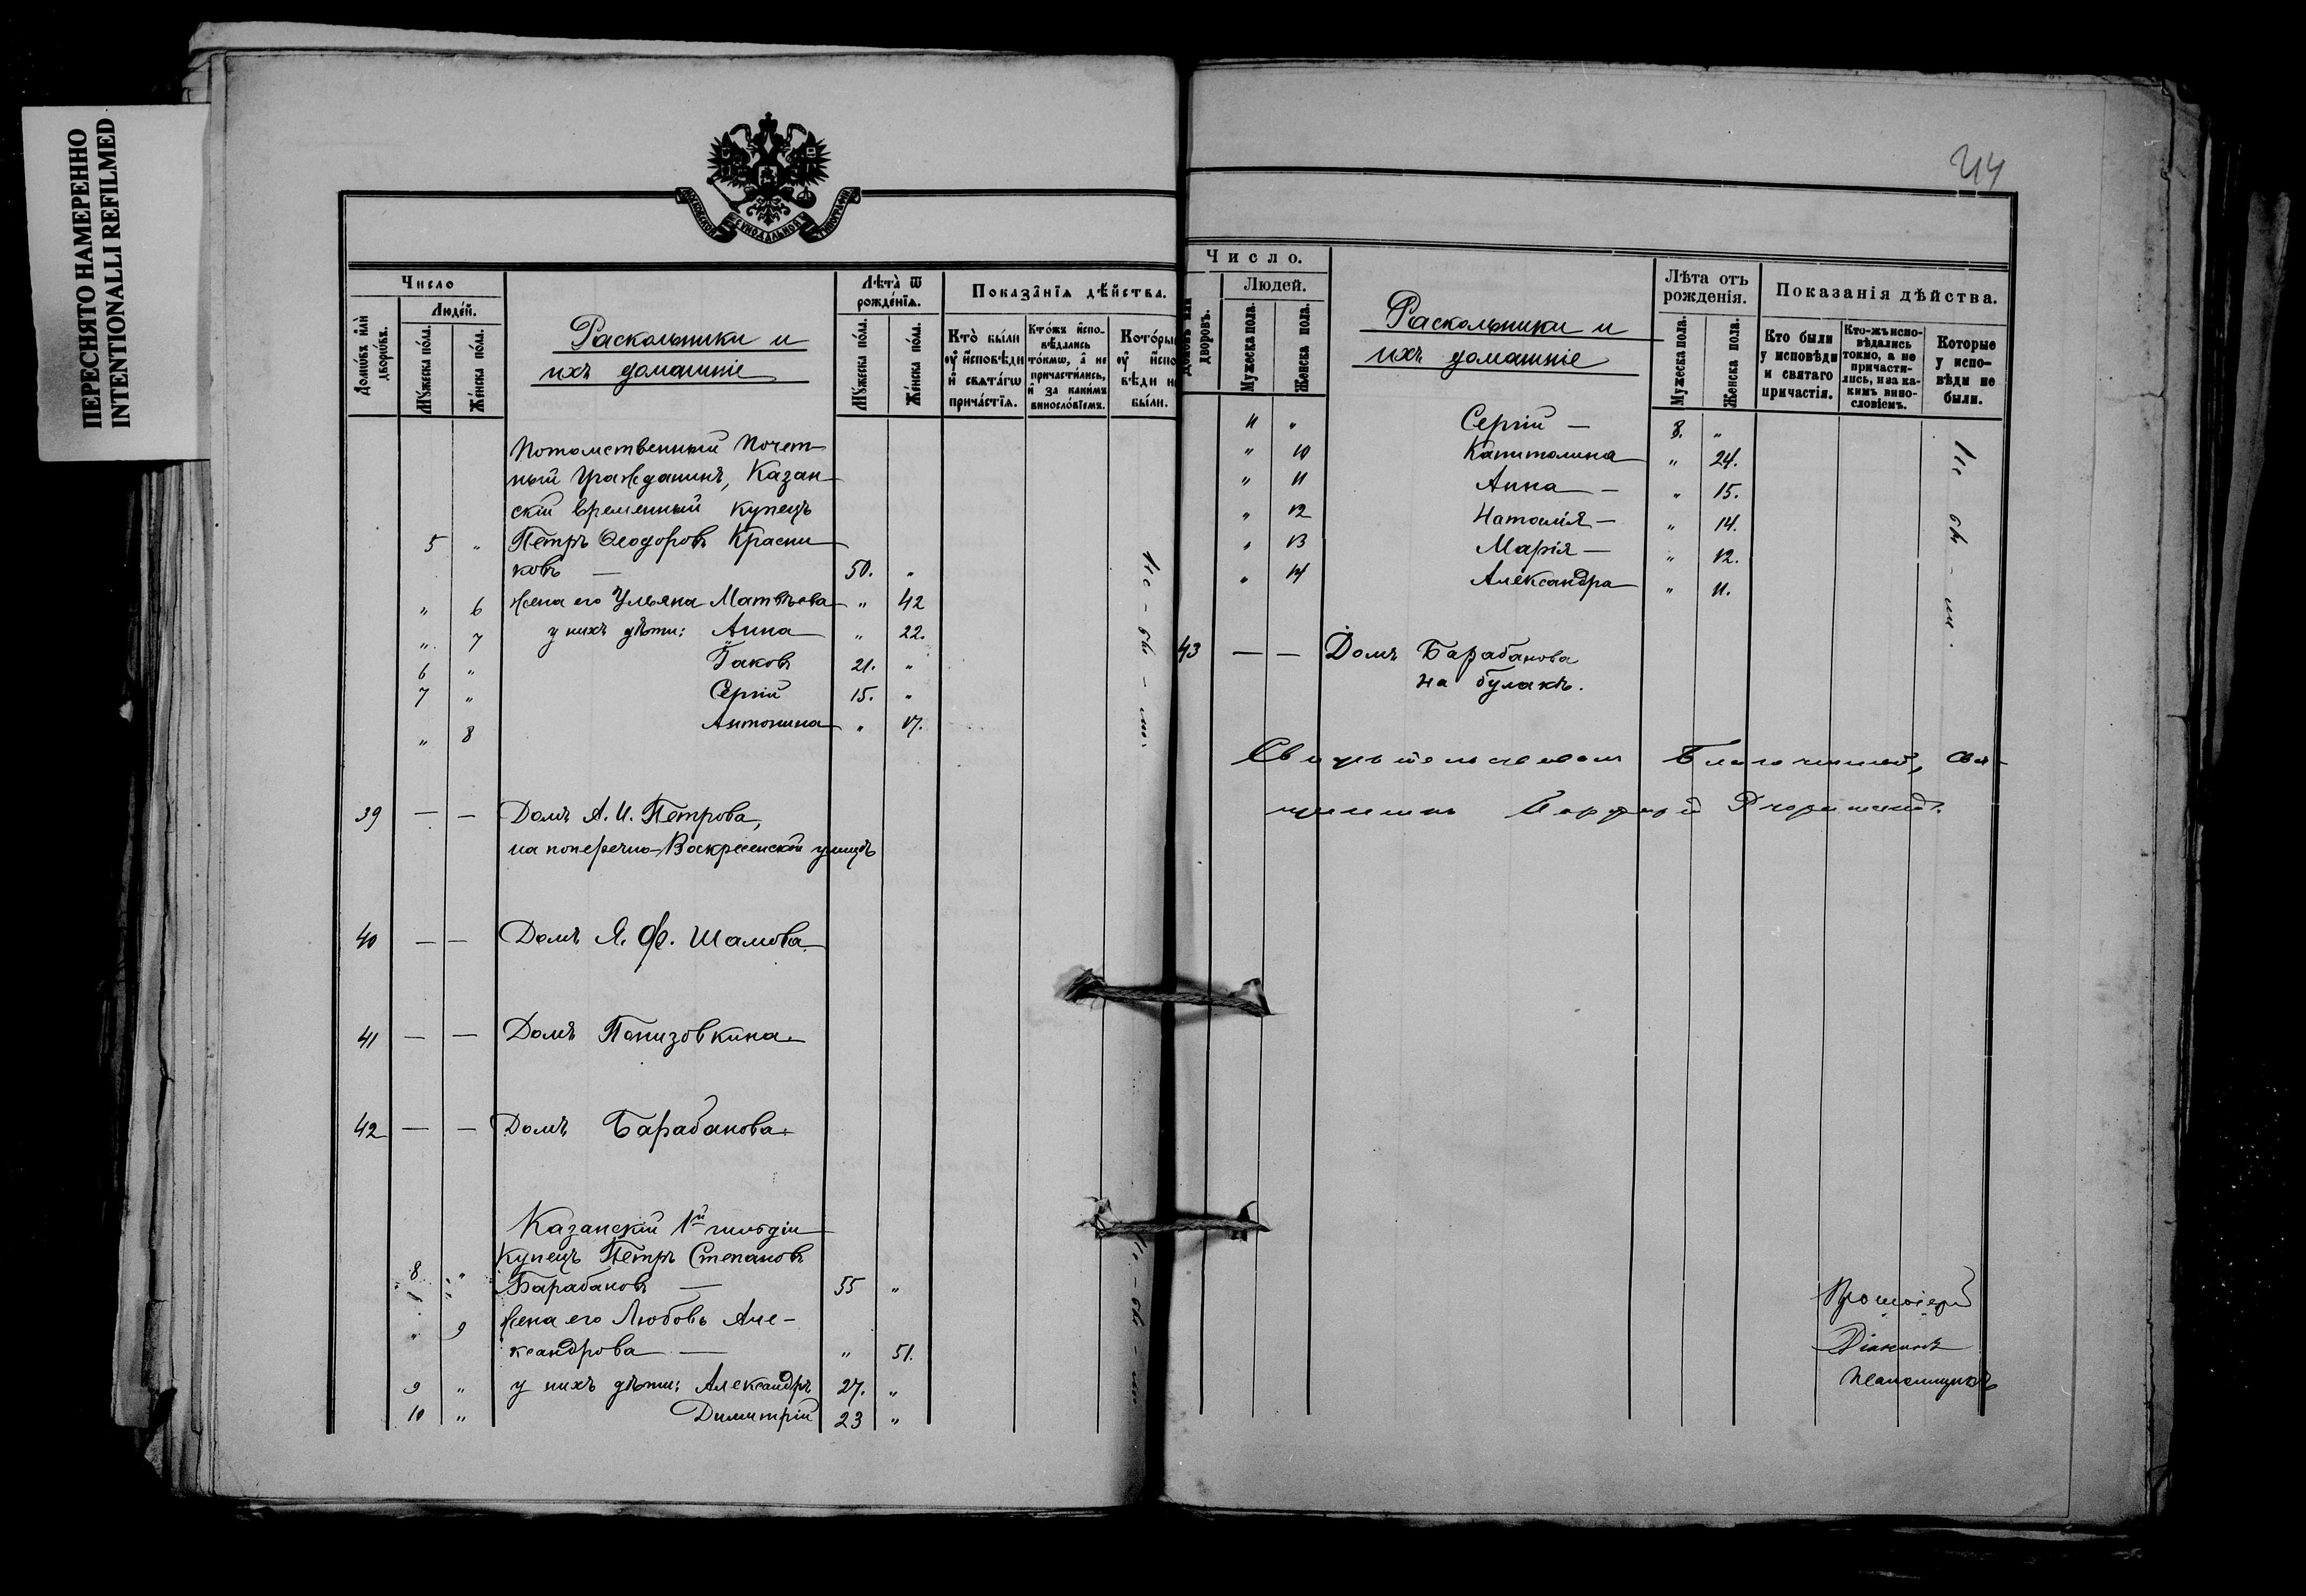 ПЕРЕСНЯТО НАМЕРЕННО
INTENTIONALLI REFILMED
МОСКОВСКОЙ СУНОДАЛЬНОЙ ТИПОГРАФІИ
Число
Домѡвъ или дворѡвъ.
Людей.
Мужеска пола.
Женска пола.
Раскольники и
ихъ домашніе
Лѣта ѿ рожденїѧ.
Мужеска пола.
Женска пола.
Показанїѧ дѣйства.
Кто были оу исповѣди и свѧтагѡ причастїѧ.
Ктожъ исповѣдались токмѡ, а не причастились, и за какимъ винословїемъ.
Которые оу испо- вѣди не были.
Потомственный Почет-
ный Гражданинъ, Казан-
скій временный купецъ
5 " Петръ Ѳеодоровъ Красни-
ковъ — 50. "
" 6 Жена его Ульяна Матвѣева " 42
" 7 у нихъ дѣти: Анна " 22.
6 " Іаковъ 21. "
7 " Сергій 15. "
" 8 Антонина " 17.
Не бы- ли.
39 — — Домъ А. И. Петрова,
на поперечно-Воскресенской улицѣ
40 — — Домъ Я. Ф. Шамова
41 — — Домъ Понизовкина.
42 — — Домъ Барабанова.
Казанскій 1й гильдіи
8 " Купецъ Петръ Степановъ
Барабановъ — 55 "
" 9 Жена его Любовь Але-
ксандрова — " 51.
9 " у нихъ дѣти: Александръ 27. "
10 " Димитрій 23 "
Не - бы - ли
44
Число.
Домовъ или дворовъ.
Людей.
Мужеска пола.
Женска пола.
Раскольники и
ихъ домашніе
Лѣта отъ рожденія.
Мужеска пола.
Женска пола.
Показанія дѣйства.
Кто были у исповѣди и святаго причастія.
Кто-жъ исповѣдались токмо, а не причастились, и за какимъ винословіемъ.
Которые у исповѣди не были.
11 " Сергій — 8. "
" 10 Капитолина " 24.
" 11 Анна — " 15.
" 12 Наталія — " 14.
" 13 Марія — " 12.
" 14 Александра " 11.
Не бы - ли.
43 — — Домъ Барабанова
на булакѣ.
Свидѣтельствовалъ Благочинный, Свя-
щенникъ
Протоіерей
Діаконъ
Псаломщикъ